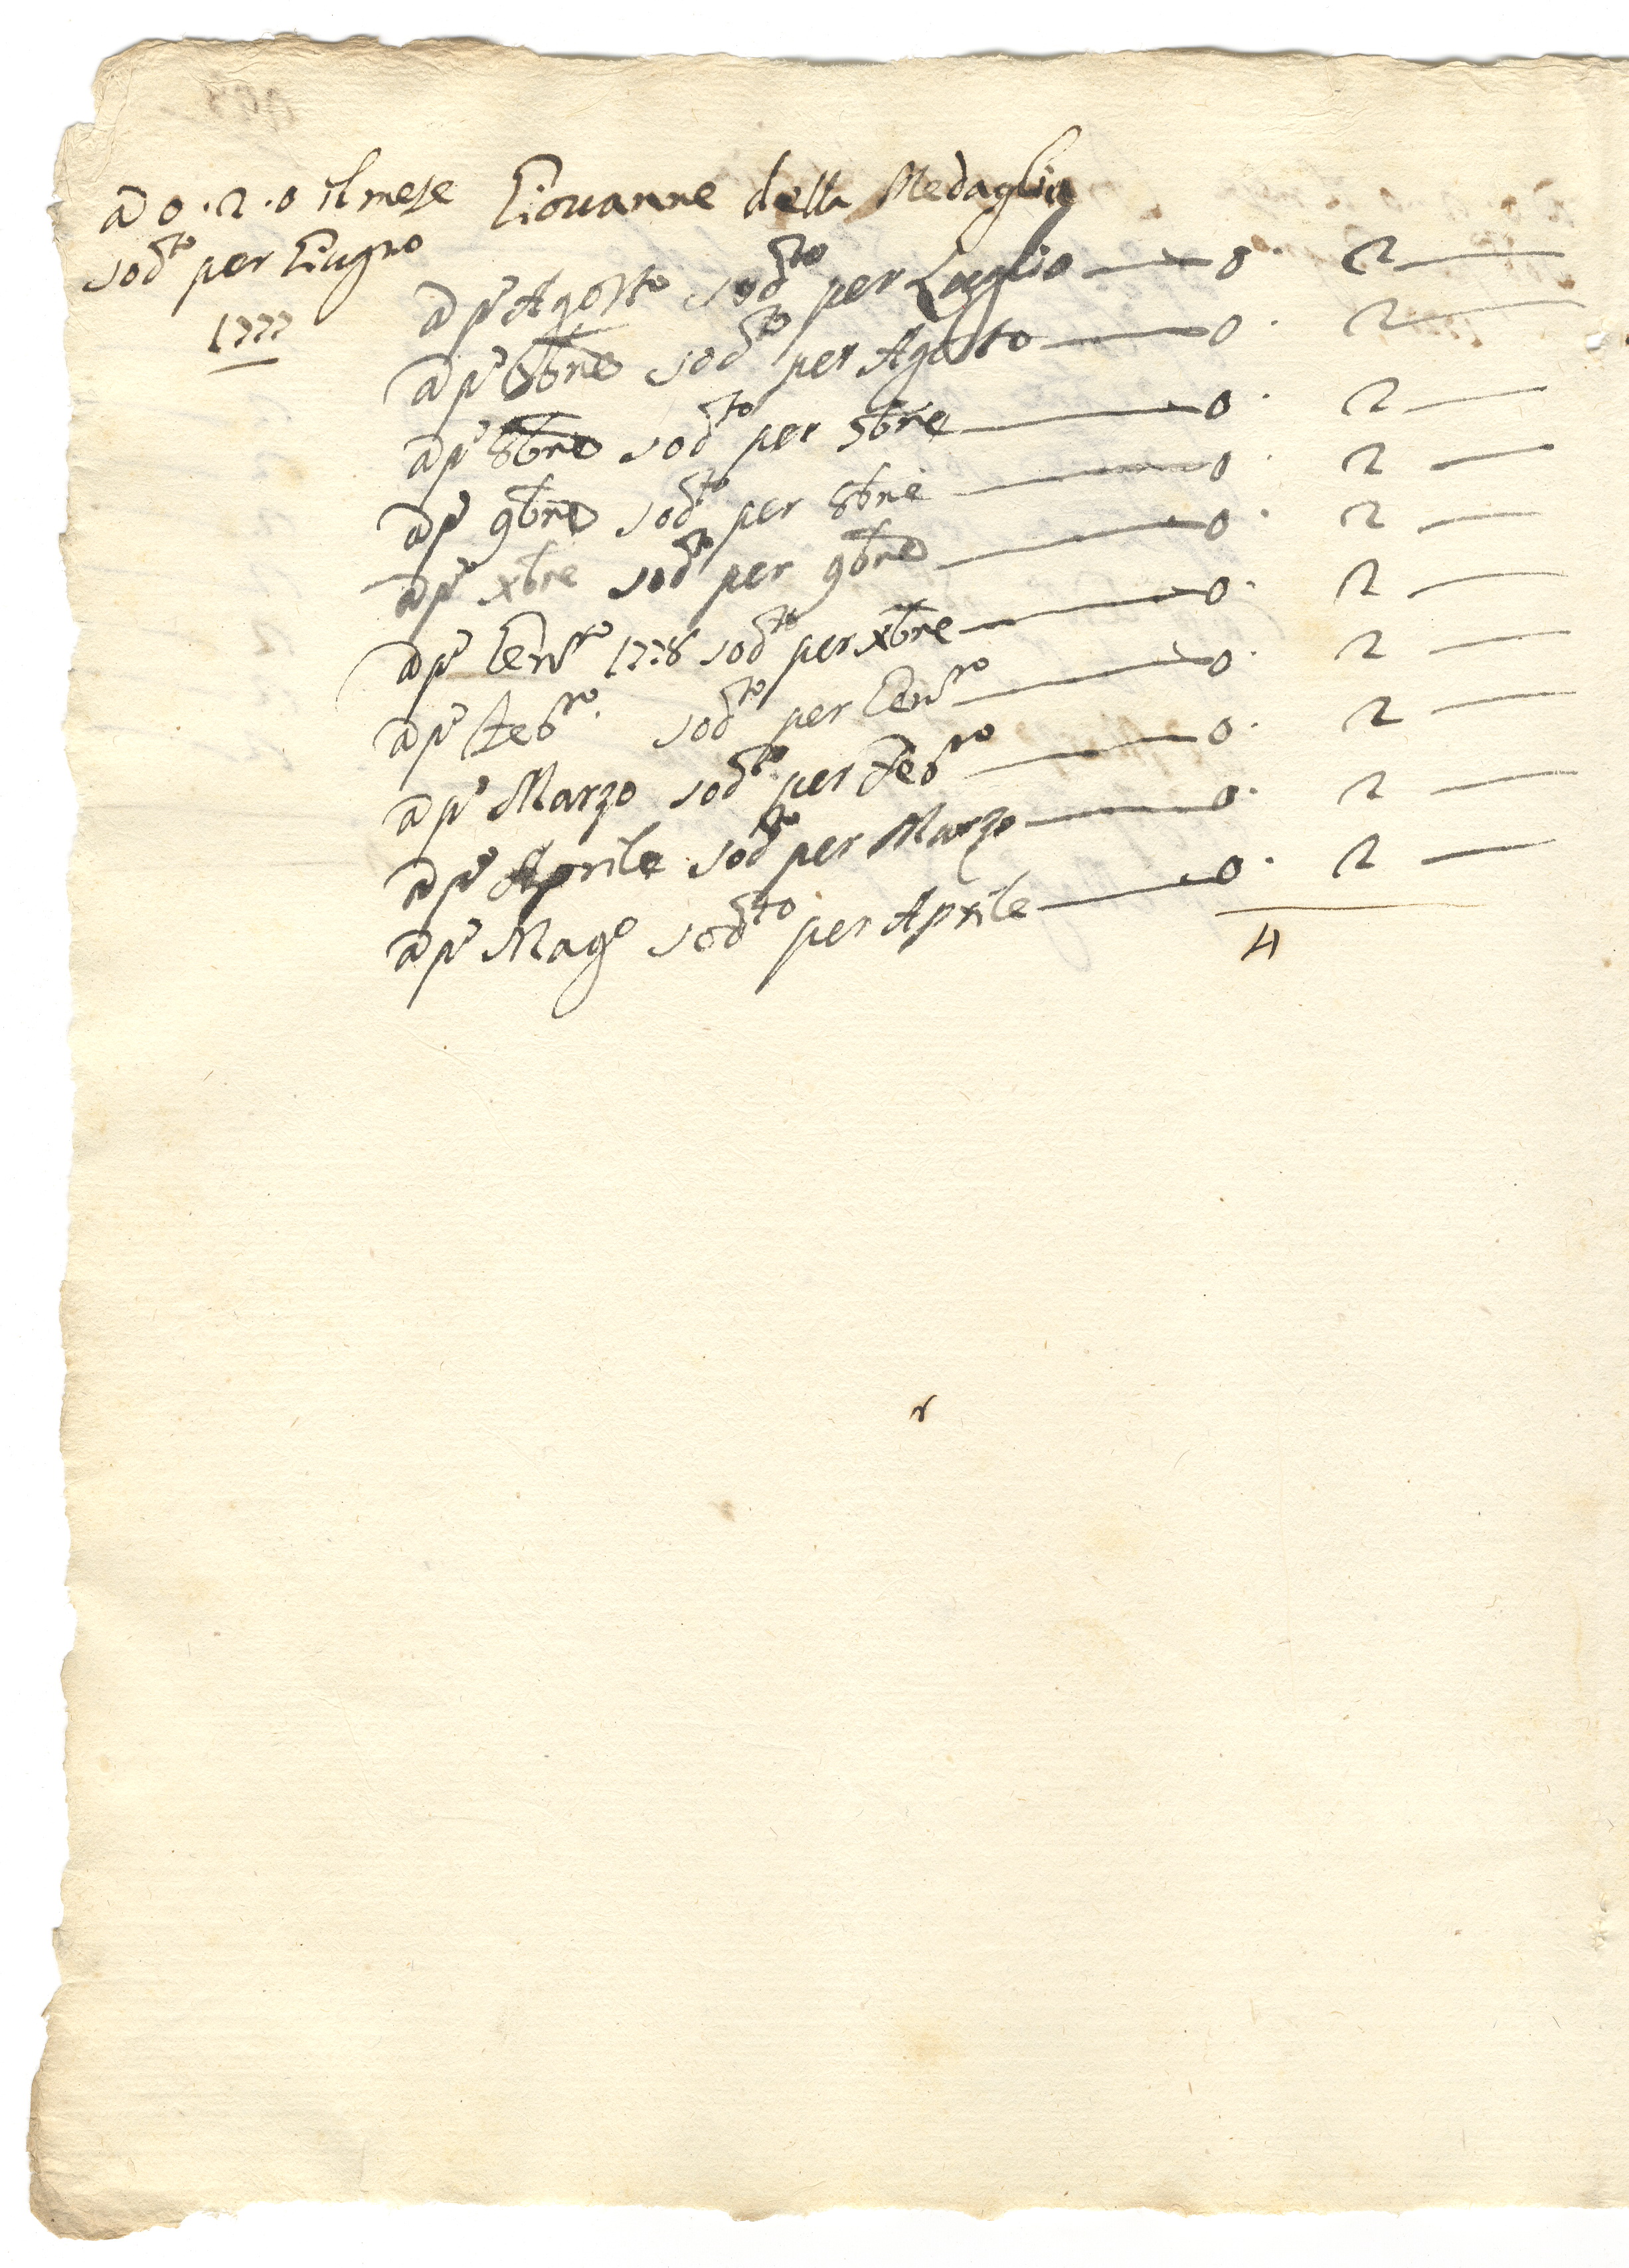 a 0.2.0 il mese Giovanne della Medaglia
sodto per Giugno
1777
a pº Agosto sodto per Luglio 0. 2
a pº 8bre sodto per Agosto 0. 2
a pº 8bre sodto per 7bre 0. 2
a pº 9bre sodto per 8bre 0. 2
a pº xbre sodto per 9bre 0. 2
a pº Genro 1778 sodto per xbre 0. 2
a pº Febro. sodto per Genro 0. 2
a pº Marzo sodto per Febro 0. 2
a pº Aprile sodto per Marzo 0. 2
a pº Magº sodto per Aprile 0. 2
4